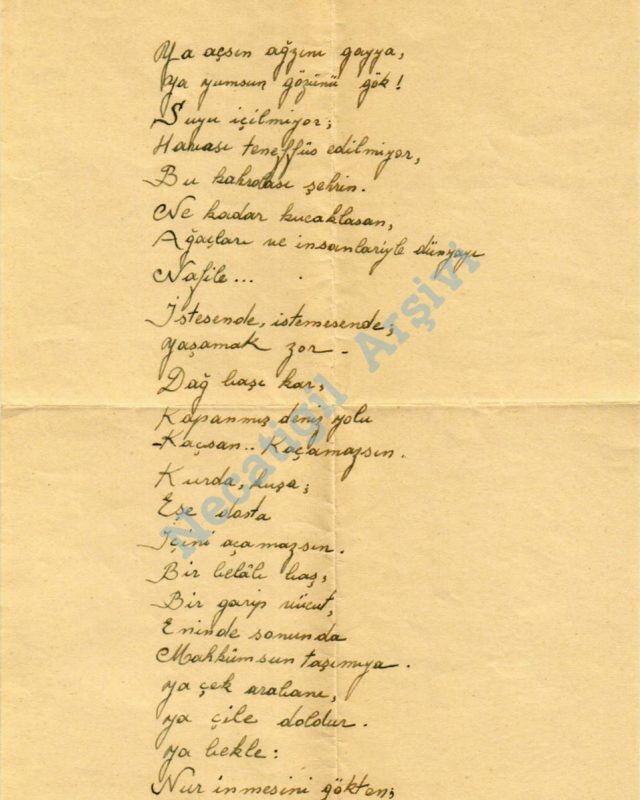 Ya açsın ağzını gayya,
Ya yumsun gözünü gök!
Suyu içilmiyor;
Havası teneffüs edilmiyor,
Bu kahrolası şehrin.
Ne kadar kucaklasan,
Ağaçları ve insanlariyle dünyayı
Nafile...
İstesende, istemesende;
Yaşamak zor -
Dağ başı kar,
Kapanmış deniz yolu
Kaçsan.. Kaçamazsın.
Kurda, kuşa;
Eşe dosta
İçini açamazsın.
Bir belâlı baş,
Bir garip vücut,
Eninde sonunda
Mahkûmsun taşımıya.
Ya çek arabanı,
Ya çile doldur.
Ya bekle:
Nur inmesini gökten;
Necatigil Arşivi